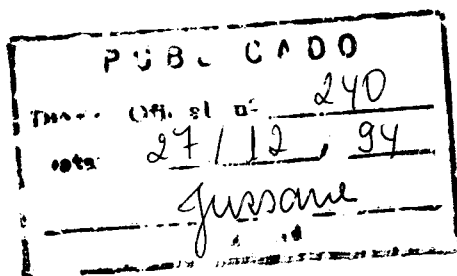 PUBLICADO
Oficial nº 240
Data: 27 / 12 / 94
Jussane